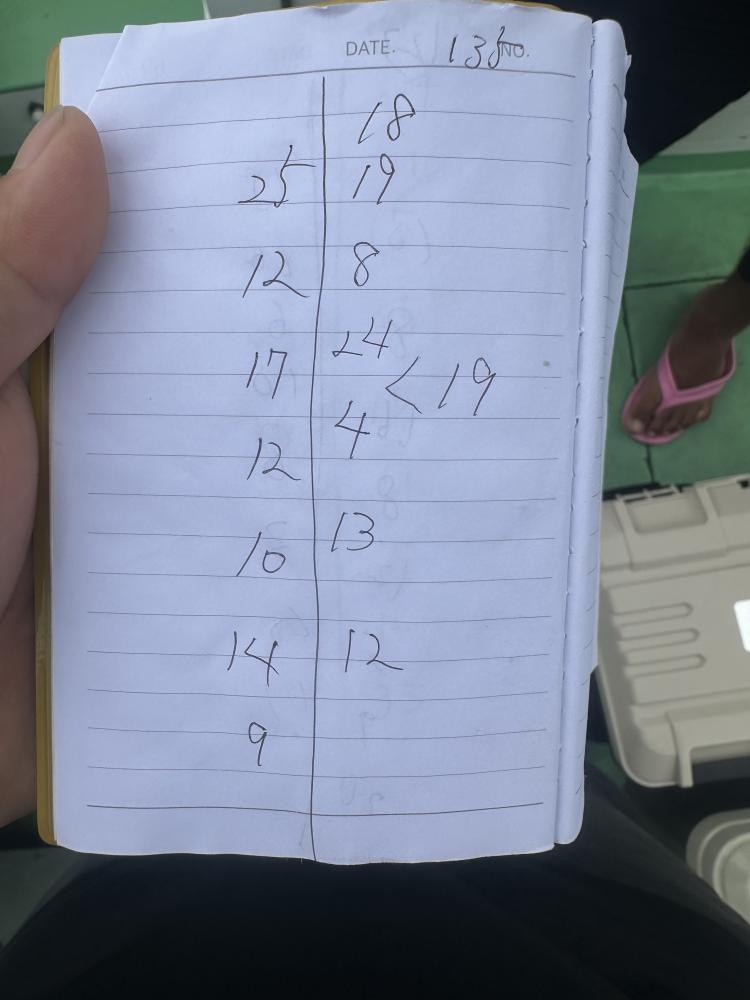 DATE. 135 NO.
18
25 19
12 8
24
17 < 19
4
12
13
10
14 12
9